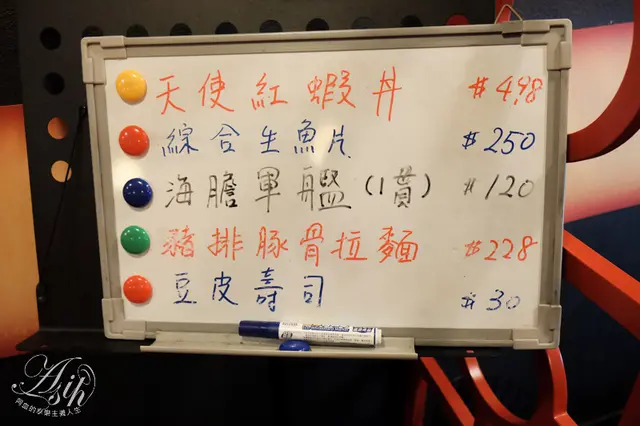 天使紅蝦丼 $498
綜合生魚片 $250
海膽軍艦(1貫) $120
豬排豚骨拉麵 $228
豆皮壽司 $30
Asih
阿血的享樂主義人生